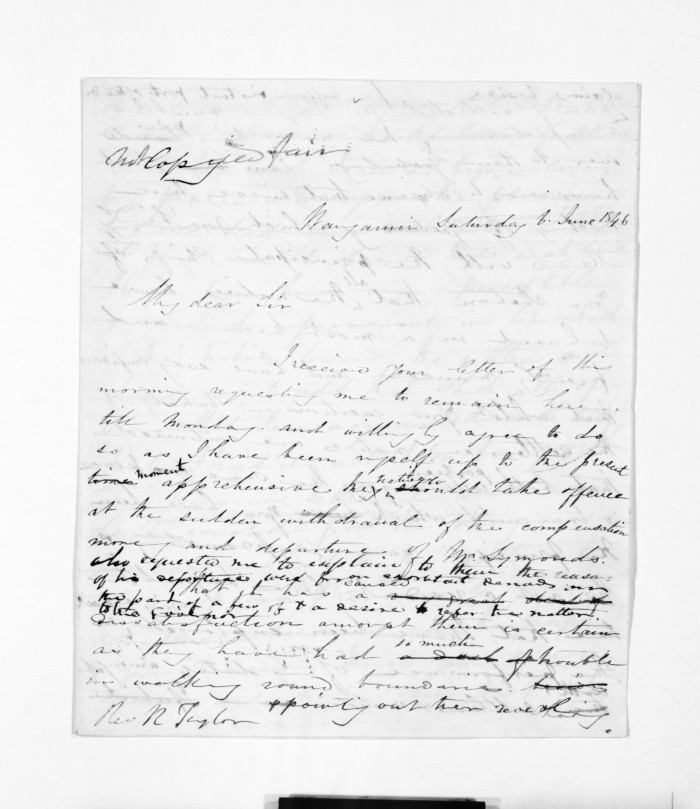 Not Copied fair
Wanganui Saturday 6. June 1846
My dear Sir
I received your letter of this
morning requesting me to remain here
till Monday. and willingly agree to do
so as I have been myself up to the present
time moment apprehensive the natives should take offence
at the sudden withdrawal of the compensation
money and departure of Mr Symonds.
also requested me to explain to them the reasons
of his departure were exorbitant demands on
the part of a few & a desire to refer the matter
to the Governor
that has caused
dissatisfaction amongst them is certain
as they have had so much a deal of trouble
in walking round boundaries
& pointing out their
Rev R Taylor